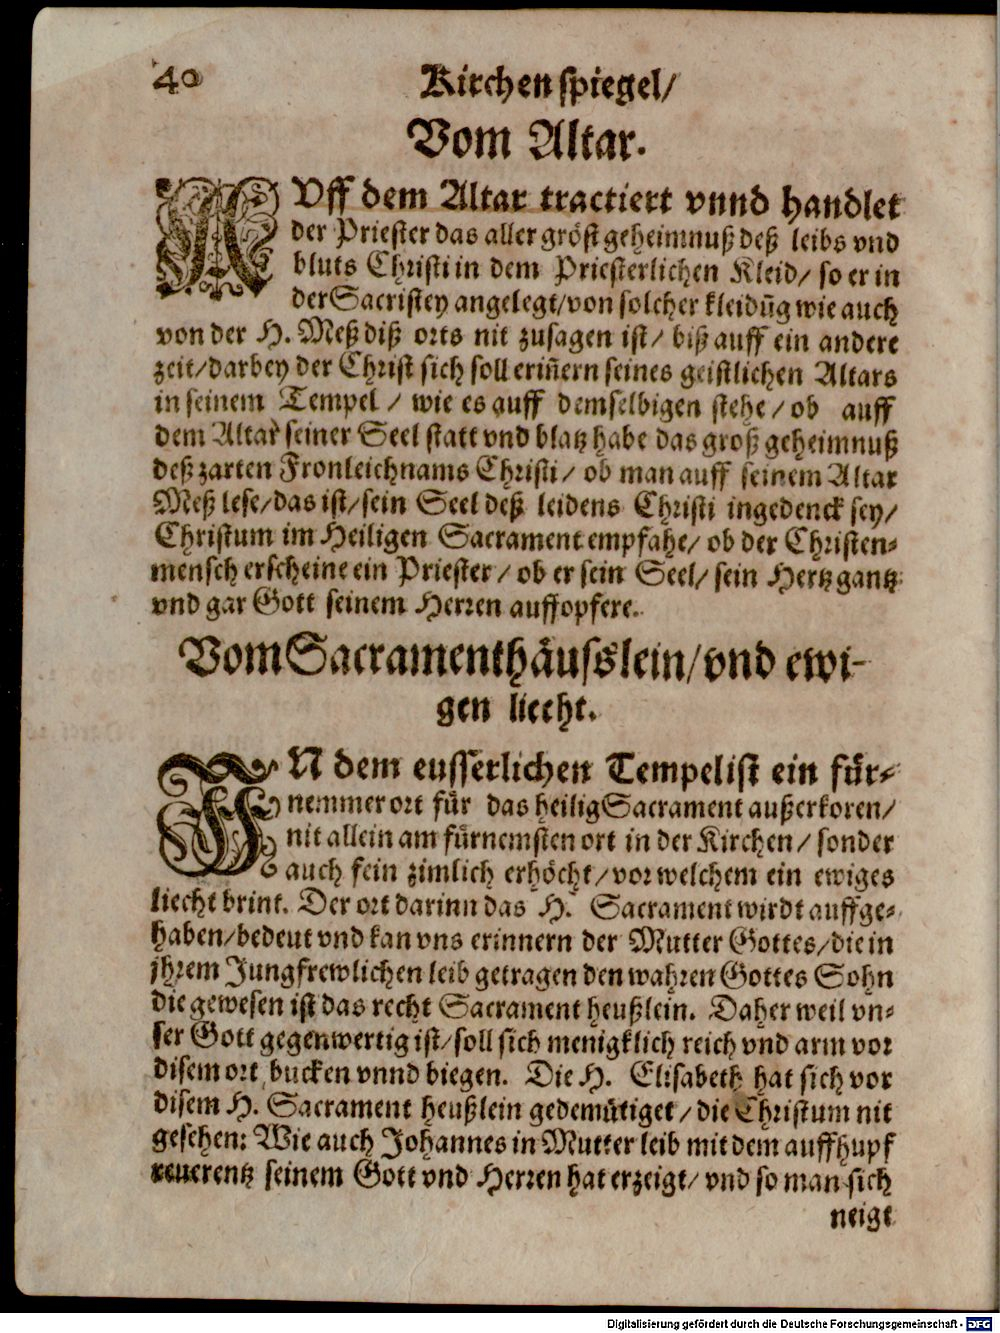 40 Kirchenspiegel/
Vom Altar.
AVff dem Altar tractiert vnnd handlet
der Priester das aller gröst geheimnuß deß leibs vnd
bluts Christi in dem Priesterlichen Kleid/ so er in
der Sacristey angelegt/ von solcher kleidūg wie auch
von der H. Meß diß orts nit zusagen ist/ biß auff ein andere
zeit/ darbey der Christ sich soll eriñern seines geistlichen Altars
in seinem Tempel/ wie es auff demselbigen stehe/ ob auff
dem Altar seiner Seel statt vnd blatz habe das groß geheimnuß
deß zarten Fronleichnams Christi/ ob man auff seinem Altar
Meß lese/ das ist/ sein Seel deß leidens Christi ingedenck sey/
Christum im Heiligen Sacrament empfahe/ ob der Christen-
mensch erscheine ein Priester/ ob er sein Seel/ sein Hertz gantz
vnd gar Gott seinem Herren auffopfere.
Vom Sacramenthäusslein/ vnd ewi-
gen liecht.
IN dem eusserlichen Tempel ist ein für-
nemmer ort für das heilig Sacrament außerkoren/
nit allein am fürnemsten ort in der Kirchen/ sonder
auch fein zimlich erhöcht/ vor welchem ein ewiges
liecht brint. Der ort darinn das H. Sacrament wirdt auffge-
haben/ bedeut vnd kan vns erinnern der Mutter Gottes/ die in
jhrem Jungfrewlichen leib getragen den wahren Gottes Sohn
die gewesen ist das recht Sacrament heußlein. Daher weil vn-
ser Gott gegenwertig ist/ soll sich menigklich reich vnd arm vor
disem ort bucken vnnd biegen. Die H. Elisabeth hat sich vor
disem H. Sacrament heußlein gedemütiget/ die Christum nit
gesehen: Wie auch Johannes in Mutter leib mit dem auffhupf
reuerentz seinem Gott vnd Herren hat erzeigt/ vnd so man sich
neigt
Digitalisierung gefördert durch die Deutsche Forschungsgemeinschaft - DFG